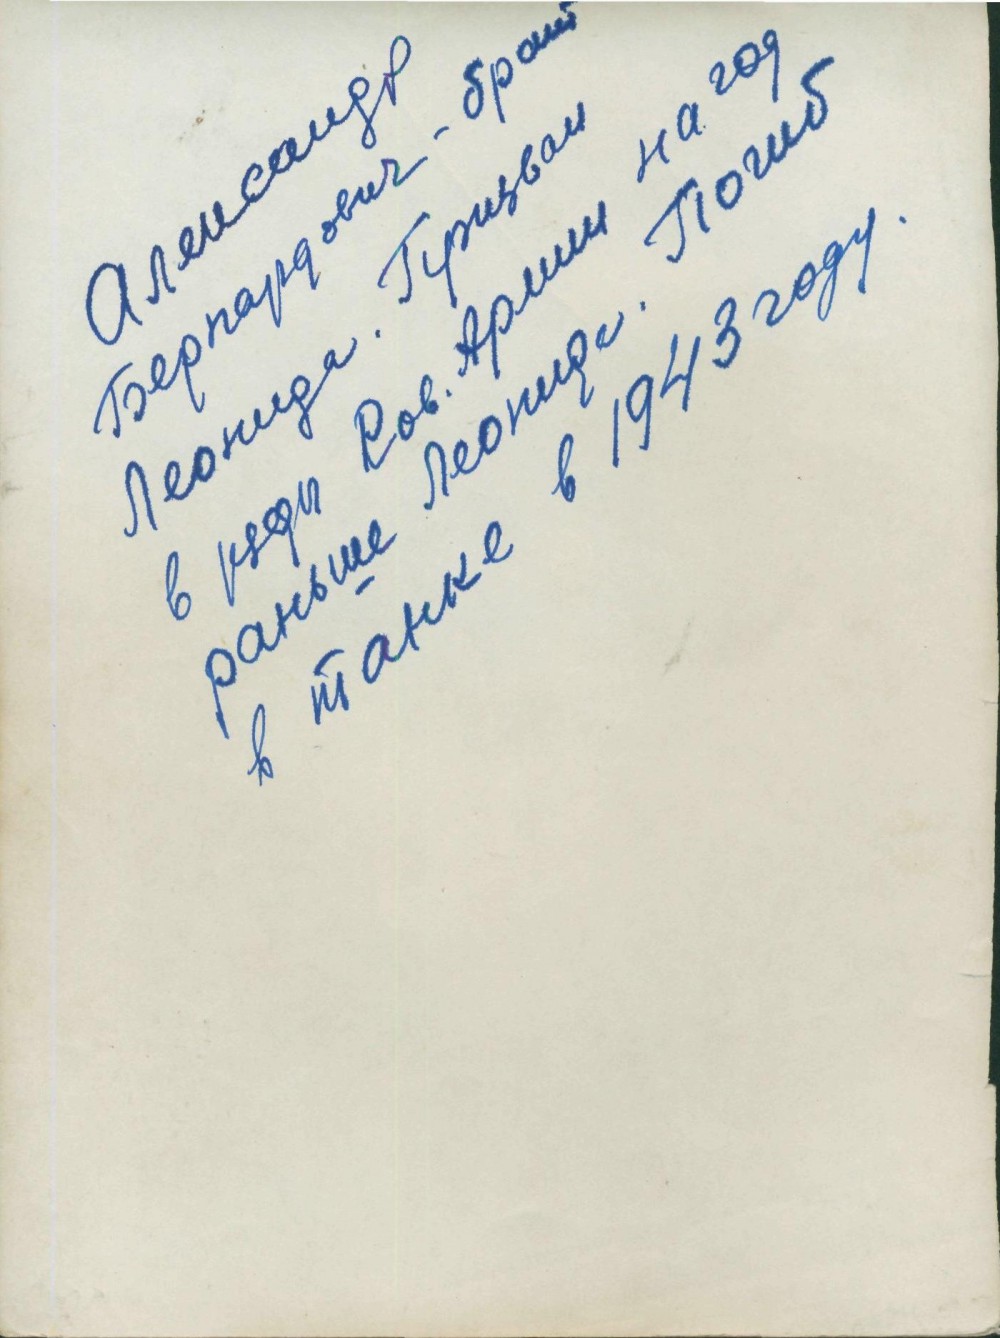 Александр
Бернардович - брат
Леонида. Призван
в ряды Сов. Армии на год
раньше Леонида. Погиб
в танке в 1943 году.